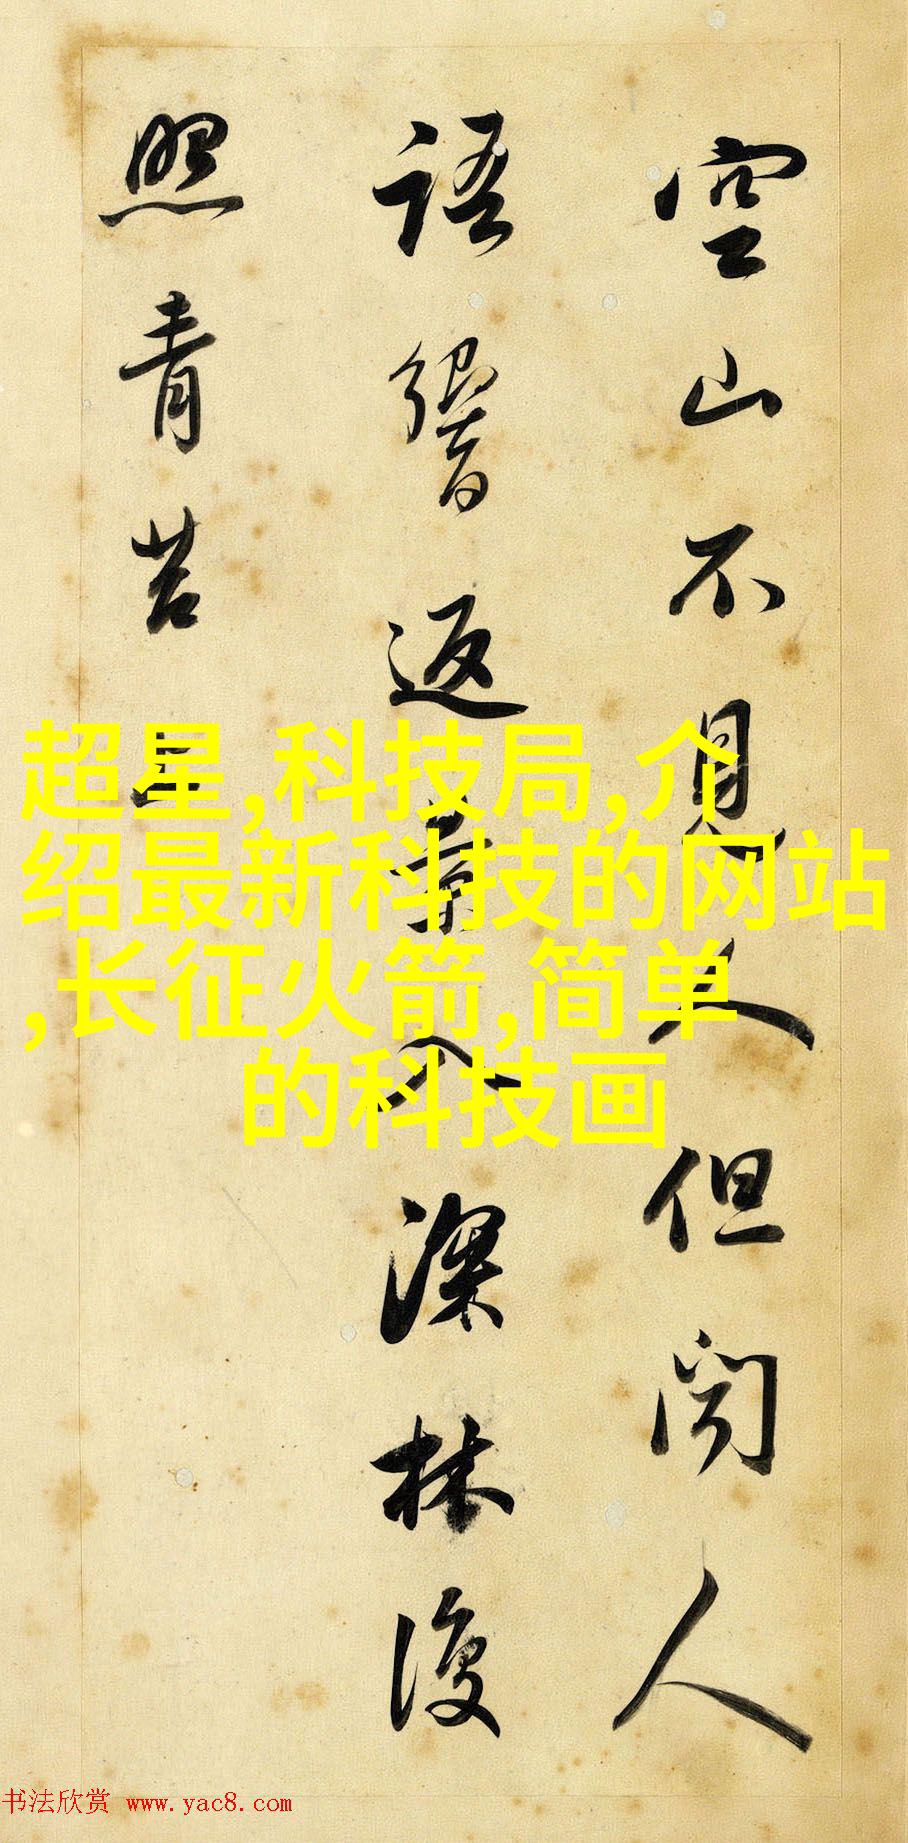 空山不見人但聞人
語響返景入深林復
照青苔上
超星,科技局,介
绍最新科技的网站
,长征火箭,简单
的科技画
书法欣赏 www.yac8.com